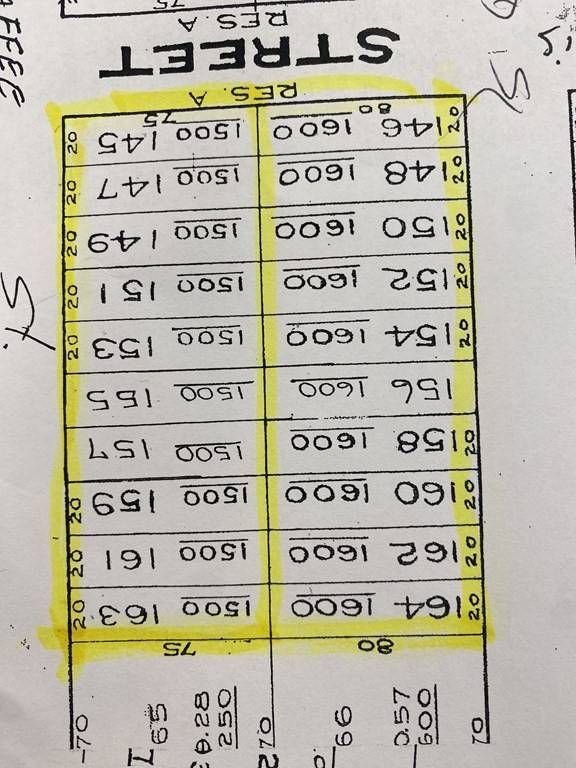 70 600 0.57 66 70 250 0.28 65 70
80 75
20 164 1600 1500 163 20
20 162 1600 1500 161 20
20 160 1600 1500 159 20
20 158 1600 1500 157
156 1600 1500 155
20 154 1600 1500 153 20
20 152 1600 1500 151 20
20 150 1600 1500 149 20
20 148 1600 1500 147 20
20 146 1600 1500 145 20
80 75
RES. A
STREET
RES. A
75